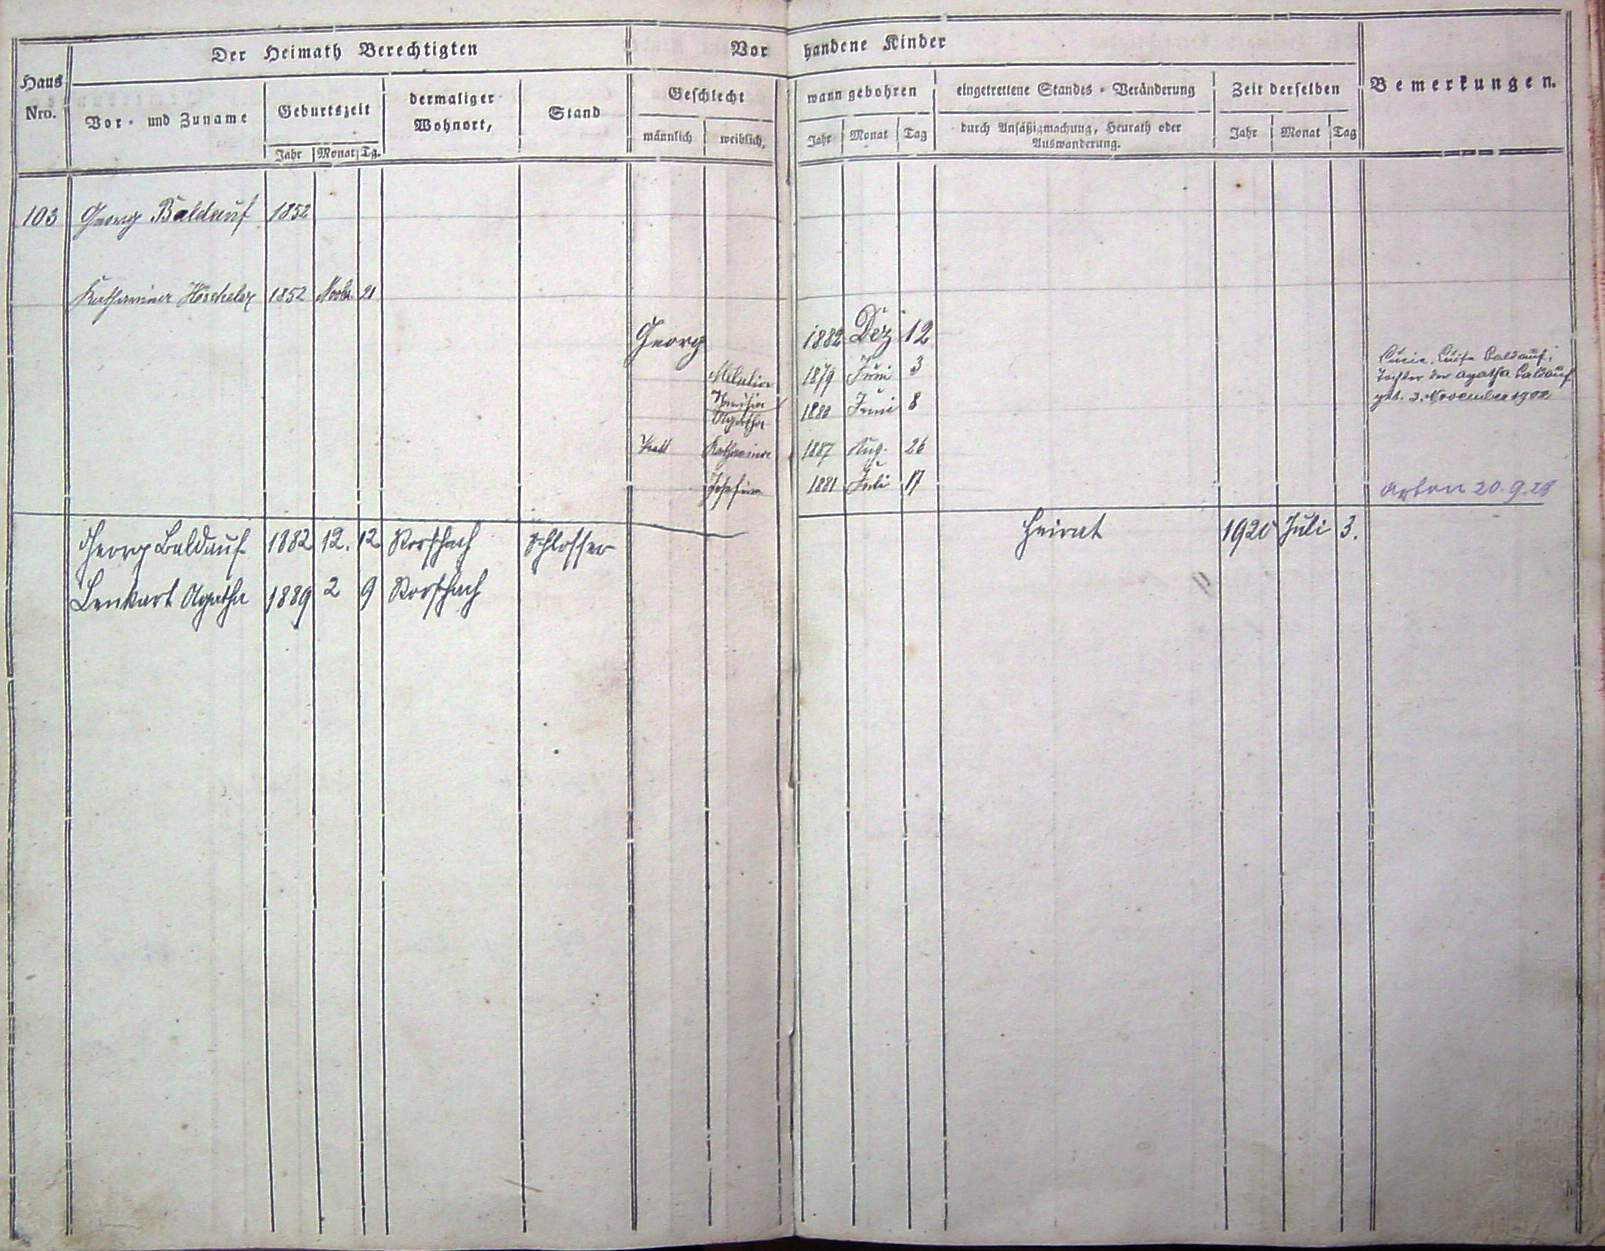 Der Heimath Berechtigten
Vor handene Kinder
Haus Nro.
Vor- und Zuname
Geburtszeit
Jahr Monat Tg.
dermaliger Wohnort,
Stand
Geschlecht
männlich weiblich,
wann gebohren
Jahr Monat Tag
eingetrettene Standes-Veränderung
durch Ansäßigmachung, Heurath oder
Auswanderung.
Zeit derselben
Jahr Monat Tag
Bemerkungen.
103 Georg Baldauf 1852
Katharina 1852 21
Georg 1882 Dez 12
1879 Juni 3
Agatha 1880 Juni 8
Katharina 1887 Aug. 26
Josefina 1881 Juli 17
Luise Baldauf,
Tochter der Agatha Baldauf
geb. 3. November 1902
20.9.28
Georg Baldauf 1882 12. 12 Rorschach Schlosser Heirat 1920 Juli 3.
Lenkart Agatha 1889 2 9 Rorschach